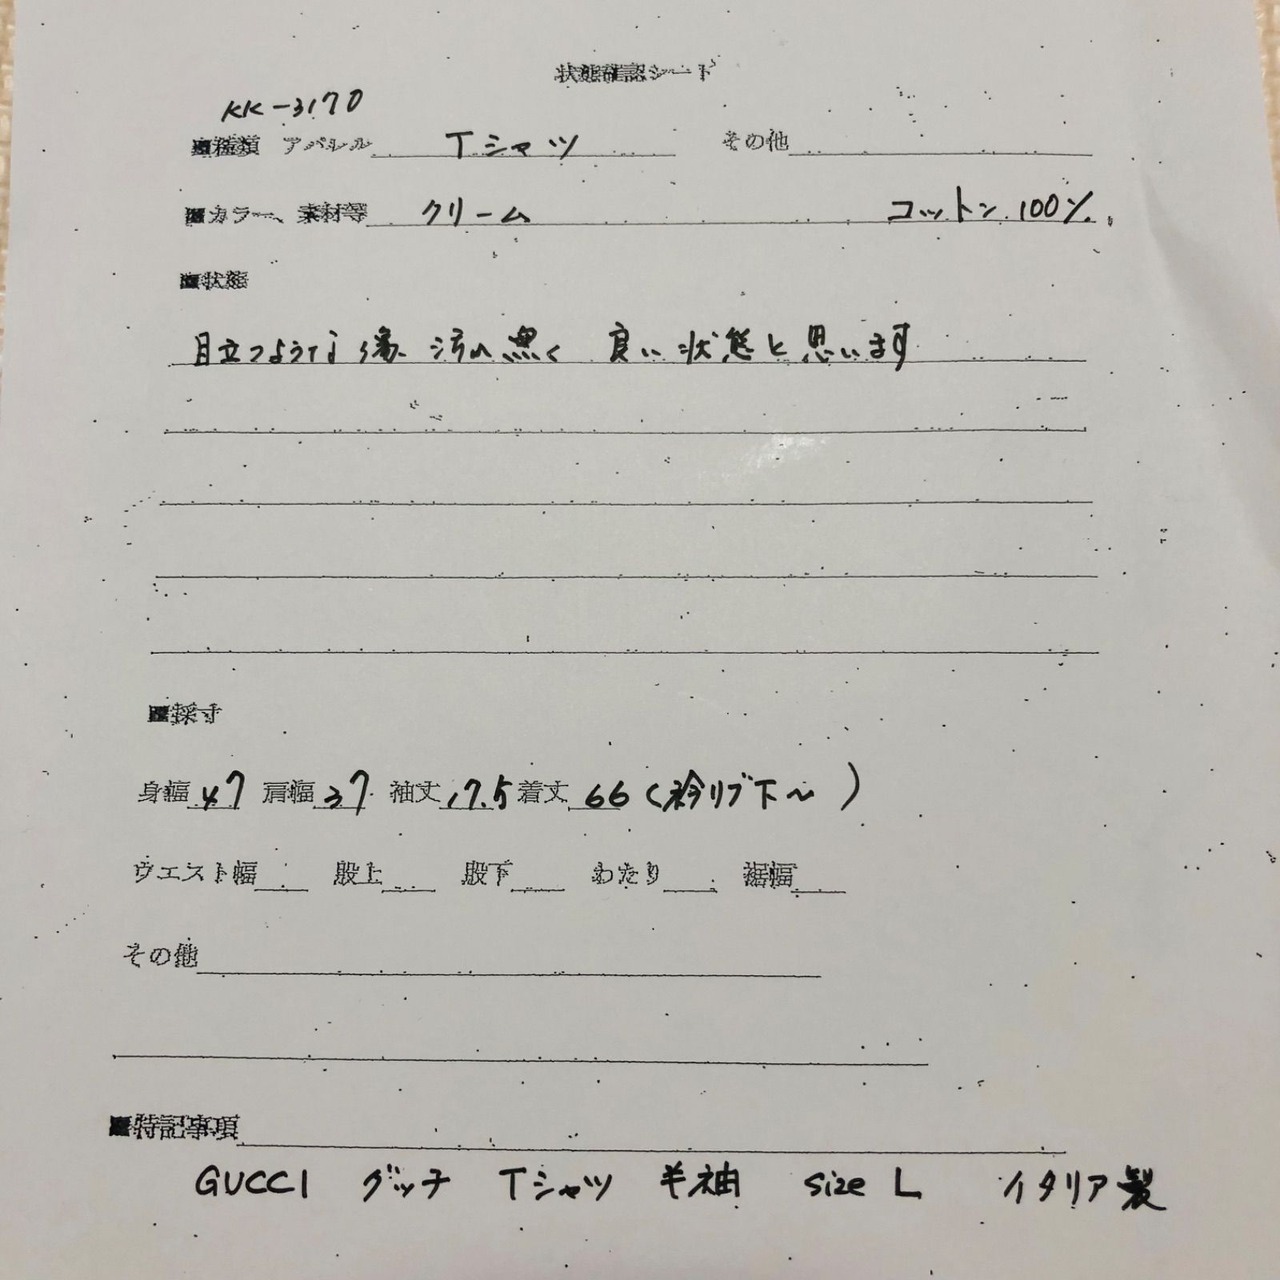 状態確認シート
KK-3170
■種類 アパレル Tシャツ その他
■カラー、素材等 クリーム コットン 100%
■状態
目立つような傷、汚れ無く 良い状態と思います
■採寸
身幅 47 肩幅 37 袖丈 17.5 着丈 66 (衿リブ下〜 )
ウエスト幅 股上 股下 わたり 裾幅
その他
■特記事項
GUCCI グッチ Tシャツ 半袖 size L イタリア製